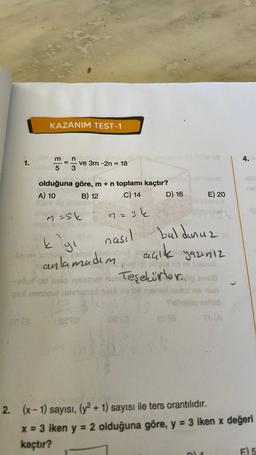 KAZANIM TEST-1
1. m/5 = n/3 ve 3m -2n = 18
4.
olduğuna göre, m + n toplamı kaçtır?
A) 10 B) 12 C) 14 D) 16 E) 20
m = 5k n = 3k
k'yı nasıl buldunuz
anlamadım açık yazınız
Teşekürler
2. (x - 1) sayısı, (y² + 1) sayısı ile ters orantılıdır.
x = 3 iken y = 2 olduğuna göre, y = 3 iken x değeri
kaçtır?